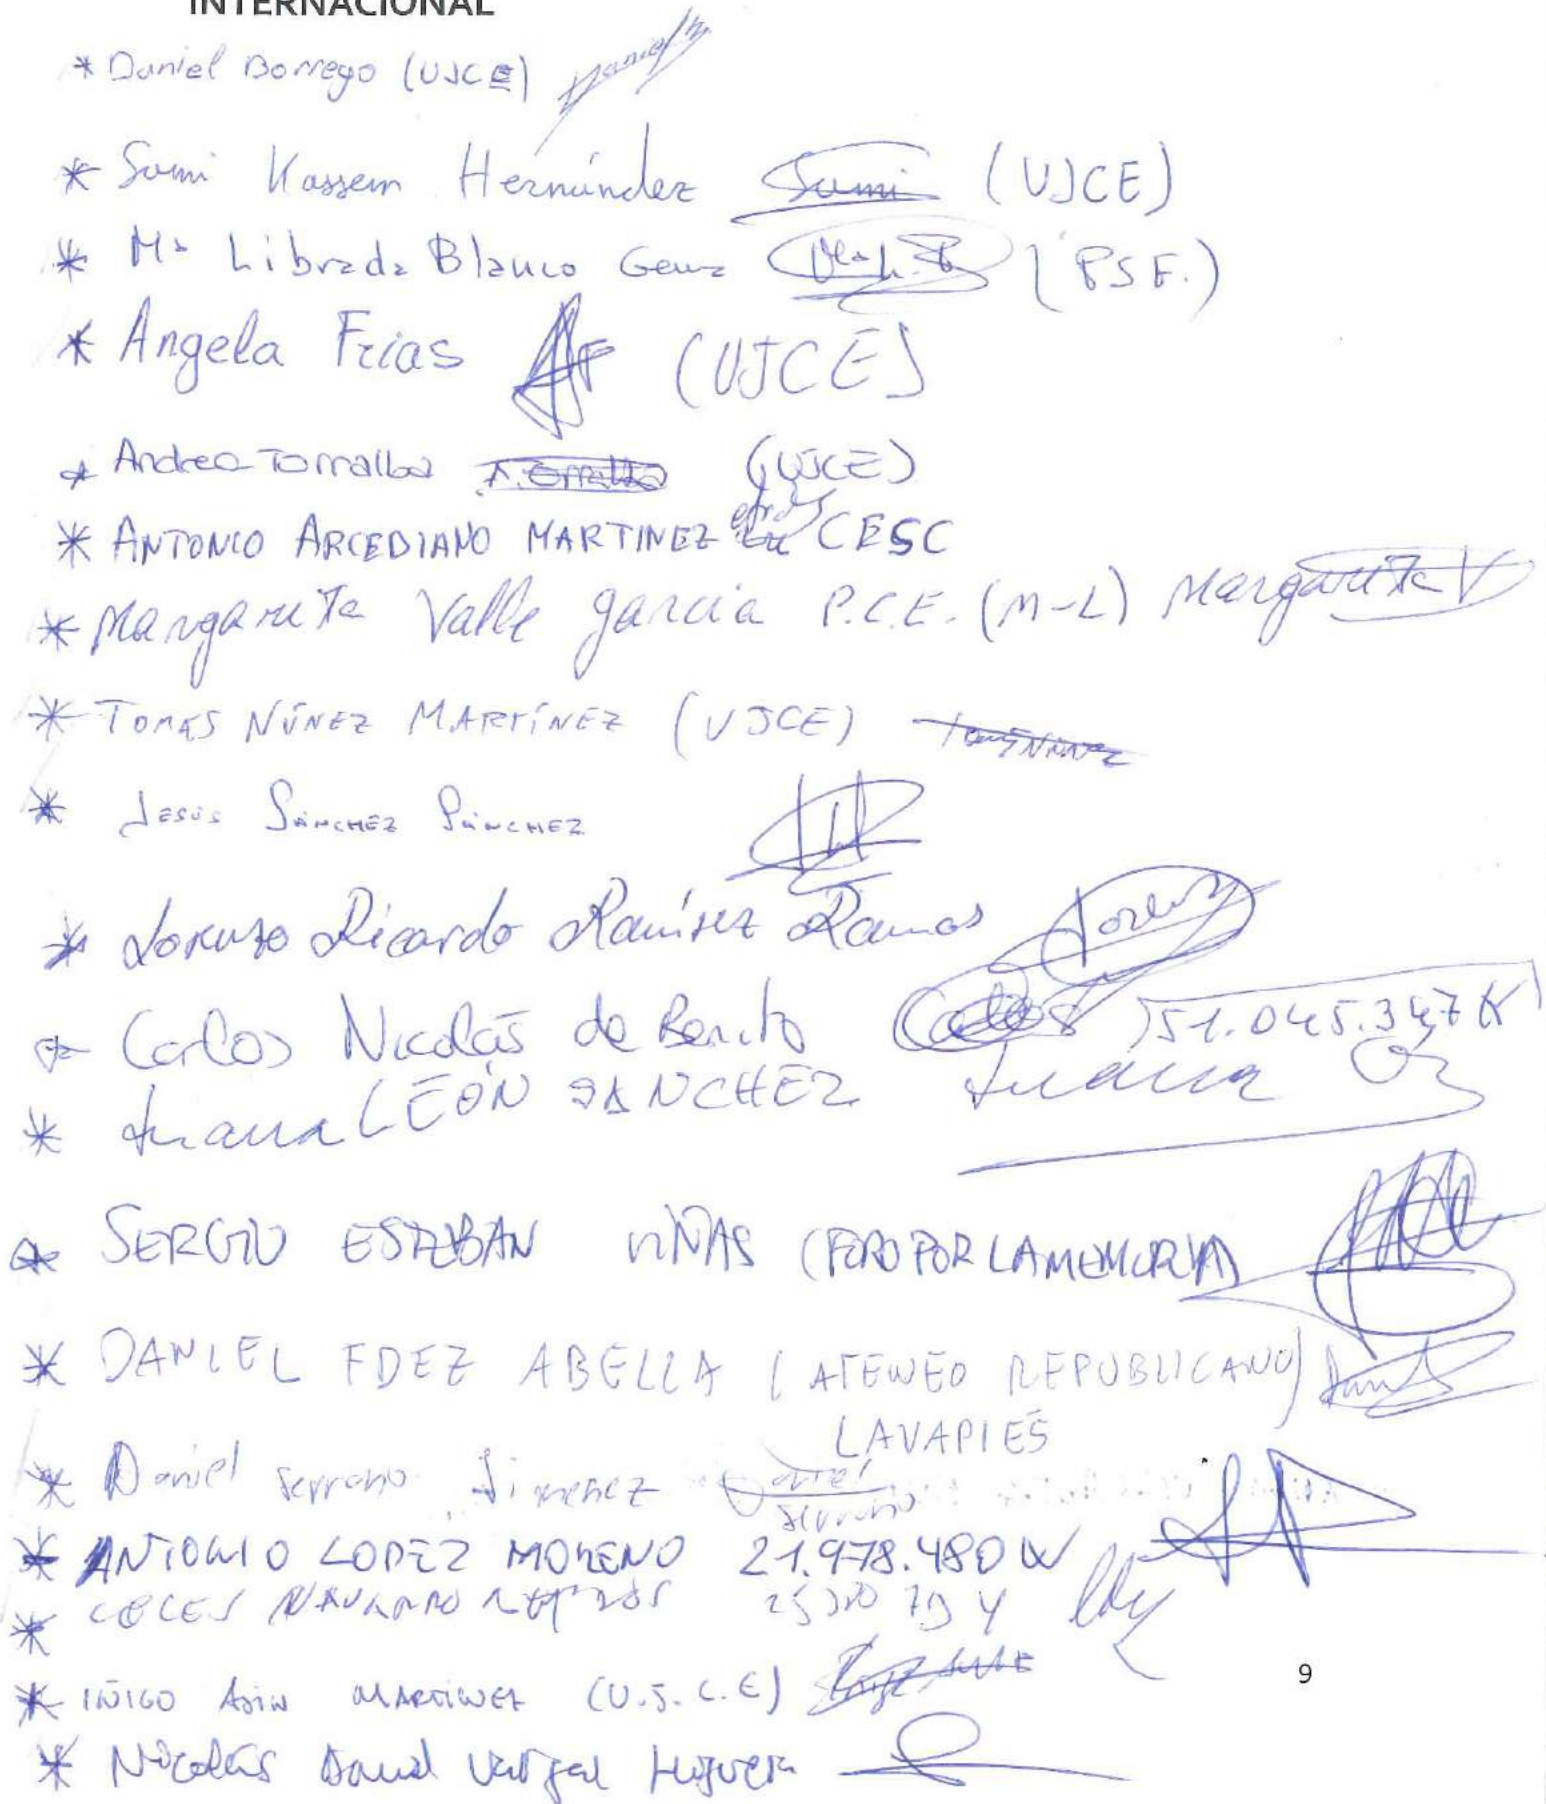 INTERNACIONAL
* Daniel Borrego (UJCE) Daniel
* Sami Kassem Hernández Sami (UJCE)
* Mª Librada Blanco (PSF.)
* Angela Frias AF (UJCE)
* Andrea Torralba A. Torralba (UJCE)
* ANTONIO ARCEDIANO MARTINEZ CESC
* Margarita Valle garcia P.C.E. (M-L) Margarita V
* TOMÁS NÚÑEZ MARTÍNEZ (UJCE) Tomás Núñez
* JESÚS SÁNCHEZ SÁNCHEZ
* Lorenzo Ricardo Ramírez Ramos Lorenzo
* Carlos Nicolás de Benito Carlos 51.045.347 K
* Juana LEÓN SANCHEZ Juana
* SERGIO ESTEBAN VIÑAS (FORO POR LA MEMORIA)
* DANIEL FDEZ ABELLA (ATENEO REPUBLICANO)
LAVAPIÉS
* Daniel Serrano Jimenez Daniel
Serrano
* ANTONIO LOPEZ MORENO 21.978.480 W
* NAVARRO
* IÑIGO MARTINEZ (U.J.C.E)
* Nicolás David Vargas
9